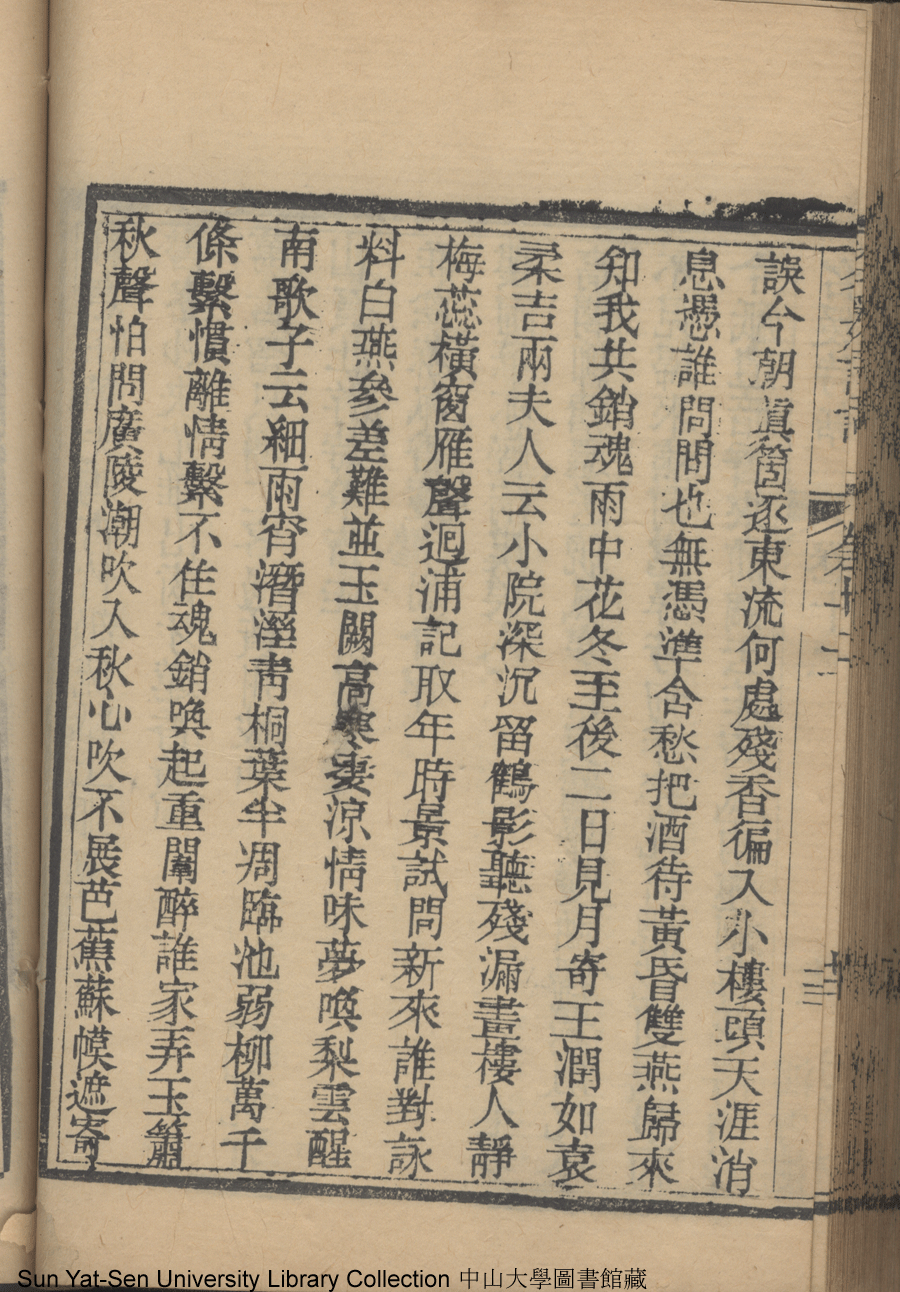 誤今朝眞箇逐東流何處殘香徧入小樓頭天涯消
息憑誰問問也無憑準含愁把酒待黃昏雙燕歸來
知我共銷魂雨中花冬至後二日見月寄王潤如袁
柔吉兩夫人云小院深沉留鶴影聽殘漏畫樓人靜
梅蕊橫窗雁聲迴浦記取年時景試問新來誰對詠
料白燕參差難並玉闕高寒凄涼情味夢喚梨雲醒
南歌子云細雨宵潛溼靑桐葉半凋臨池弱柳萬千
條繫慣離情繫不住魂銷喚起重闈醉誰家弄玉簫
秋聲怕問廣陵潮吹入秋心吹不展芭蕉蘇幙遮寄
Sun Yat-Sen University Library Collection 中山大學圖書館藏